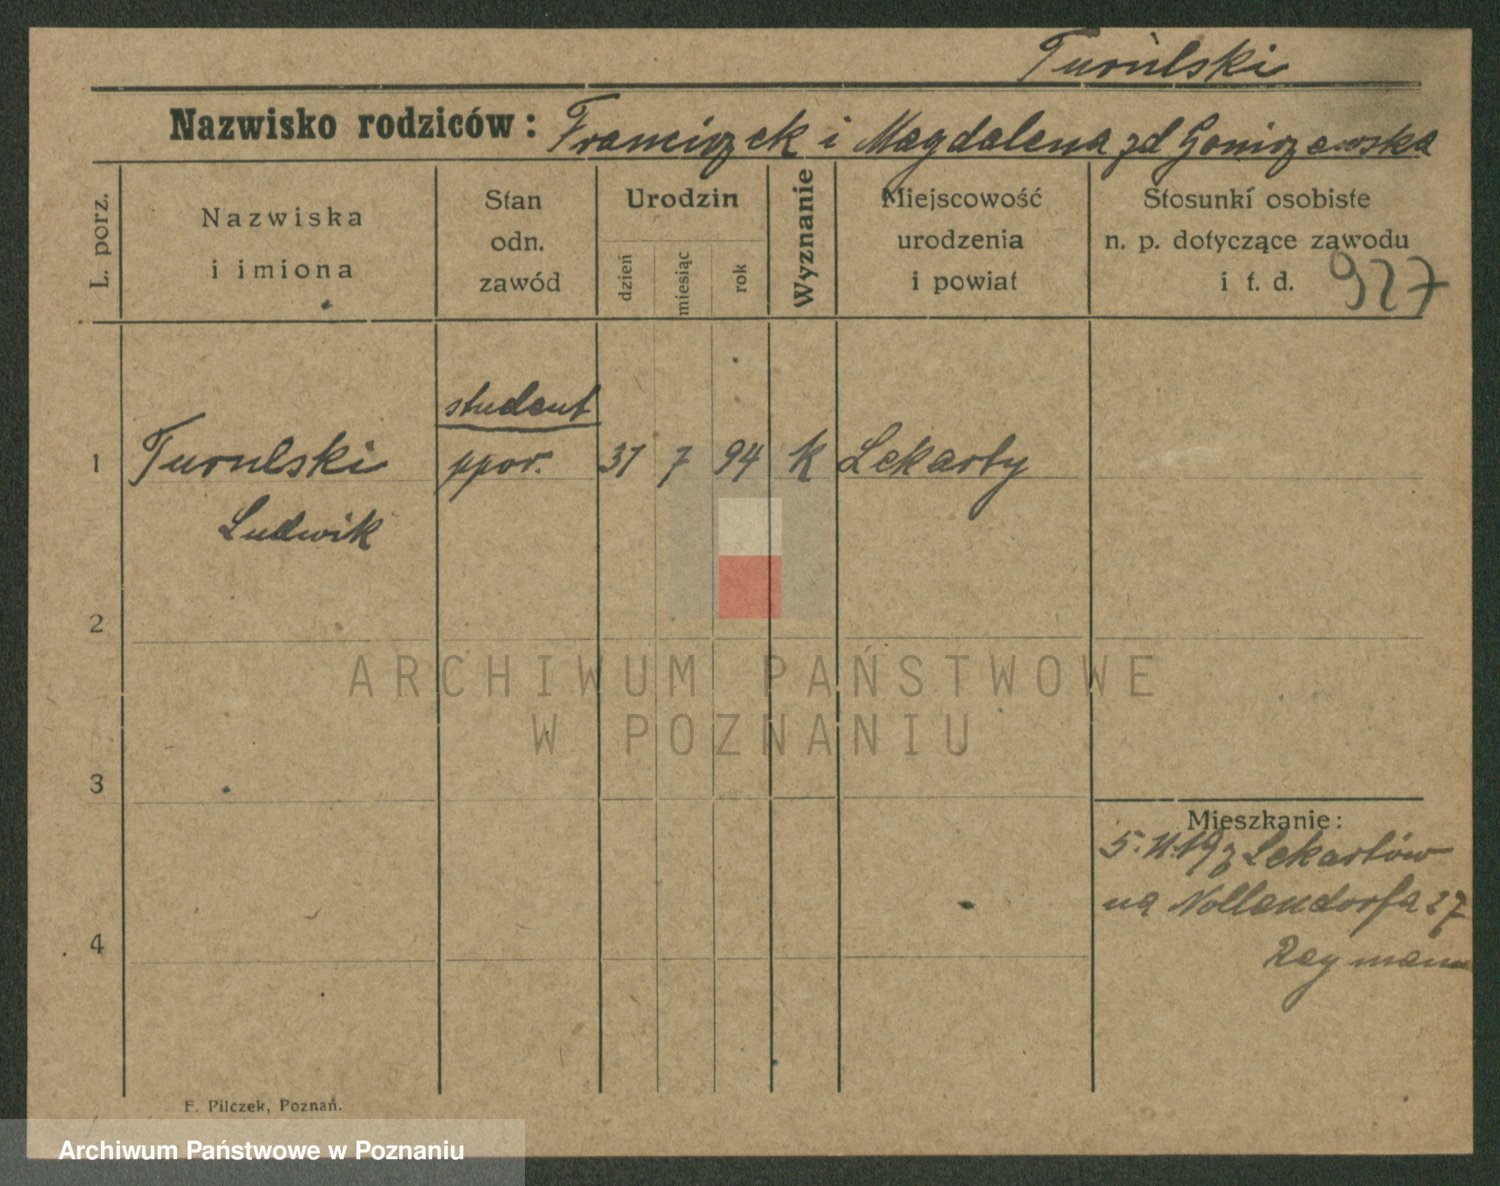 Turulski
Nazwisko rodziców: Franciszek i Magdalena zd Goniszewska
L. porz.
Nazwiska
i imiona
Stan
odn.
zawód
Urodzin
dzień
miesiąc
rok
Wyznanie
Miejscowość
urodzenia
i powiat
Stosunki osobiste
n. p. dotyczące zawodu
i t. d.
927
student
1 Turulski ppor. 31 7 94 k Lekarty
Ludwik
2
ARCHIWUM PAŃSTWOWE
W POZNANIU
3
Mieszkanie:
5.11.19 z Lekartów
na Nollendorfa 27
Raymann
4
F. Pilczek, Poznań.
Archiwum Państwowe w Poznaniu